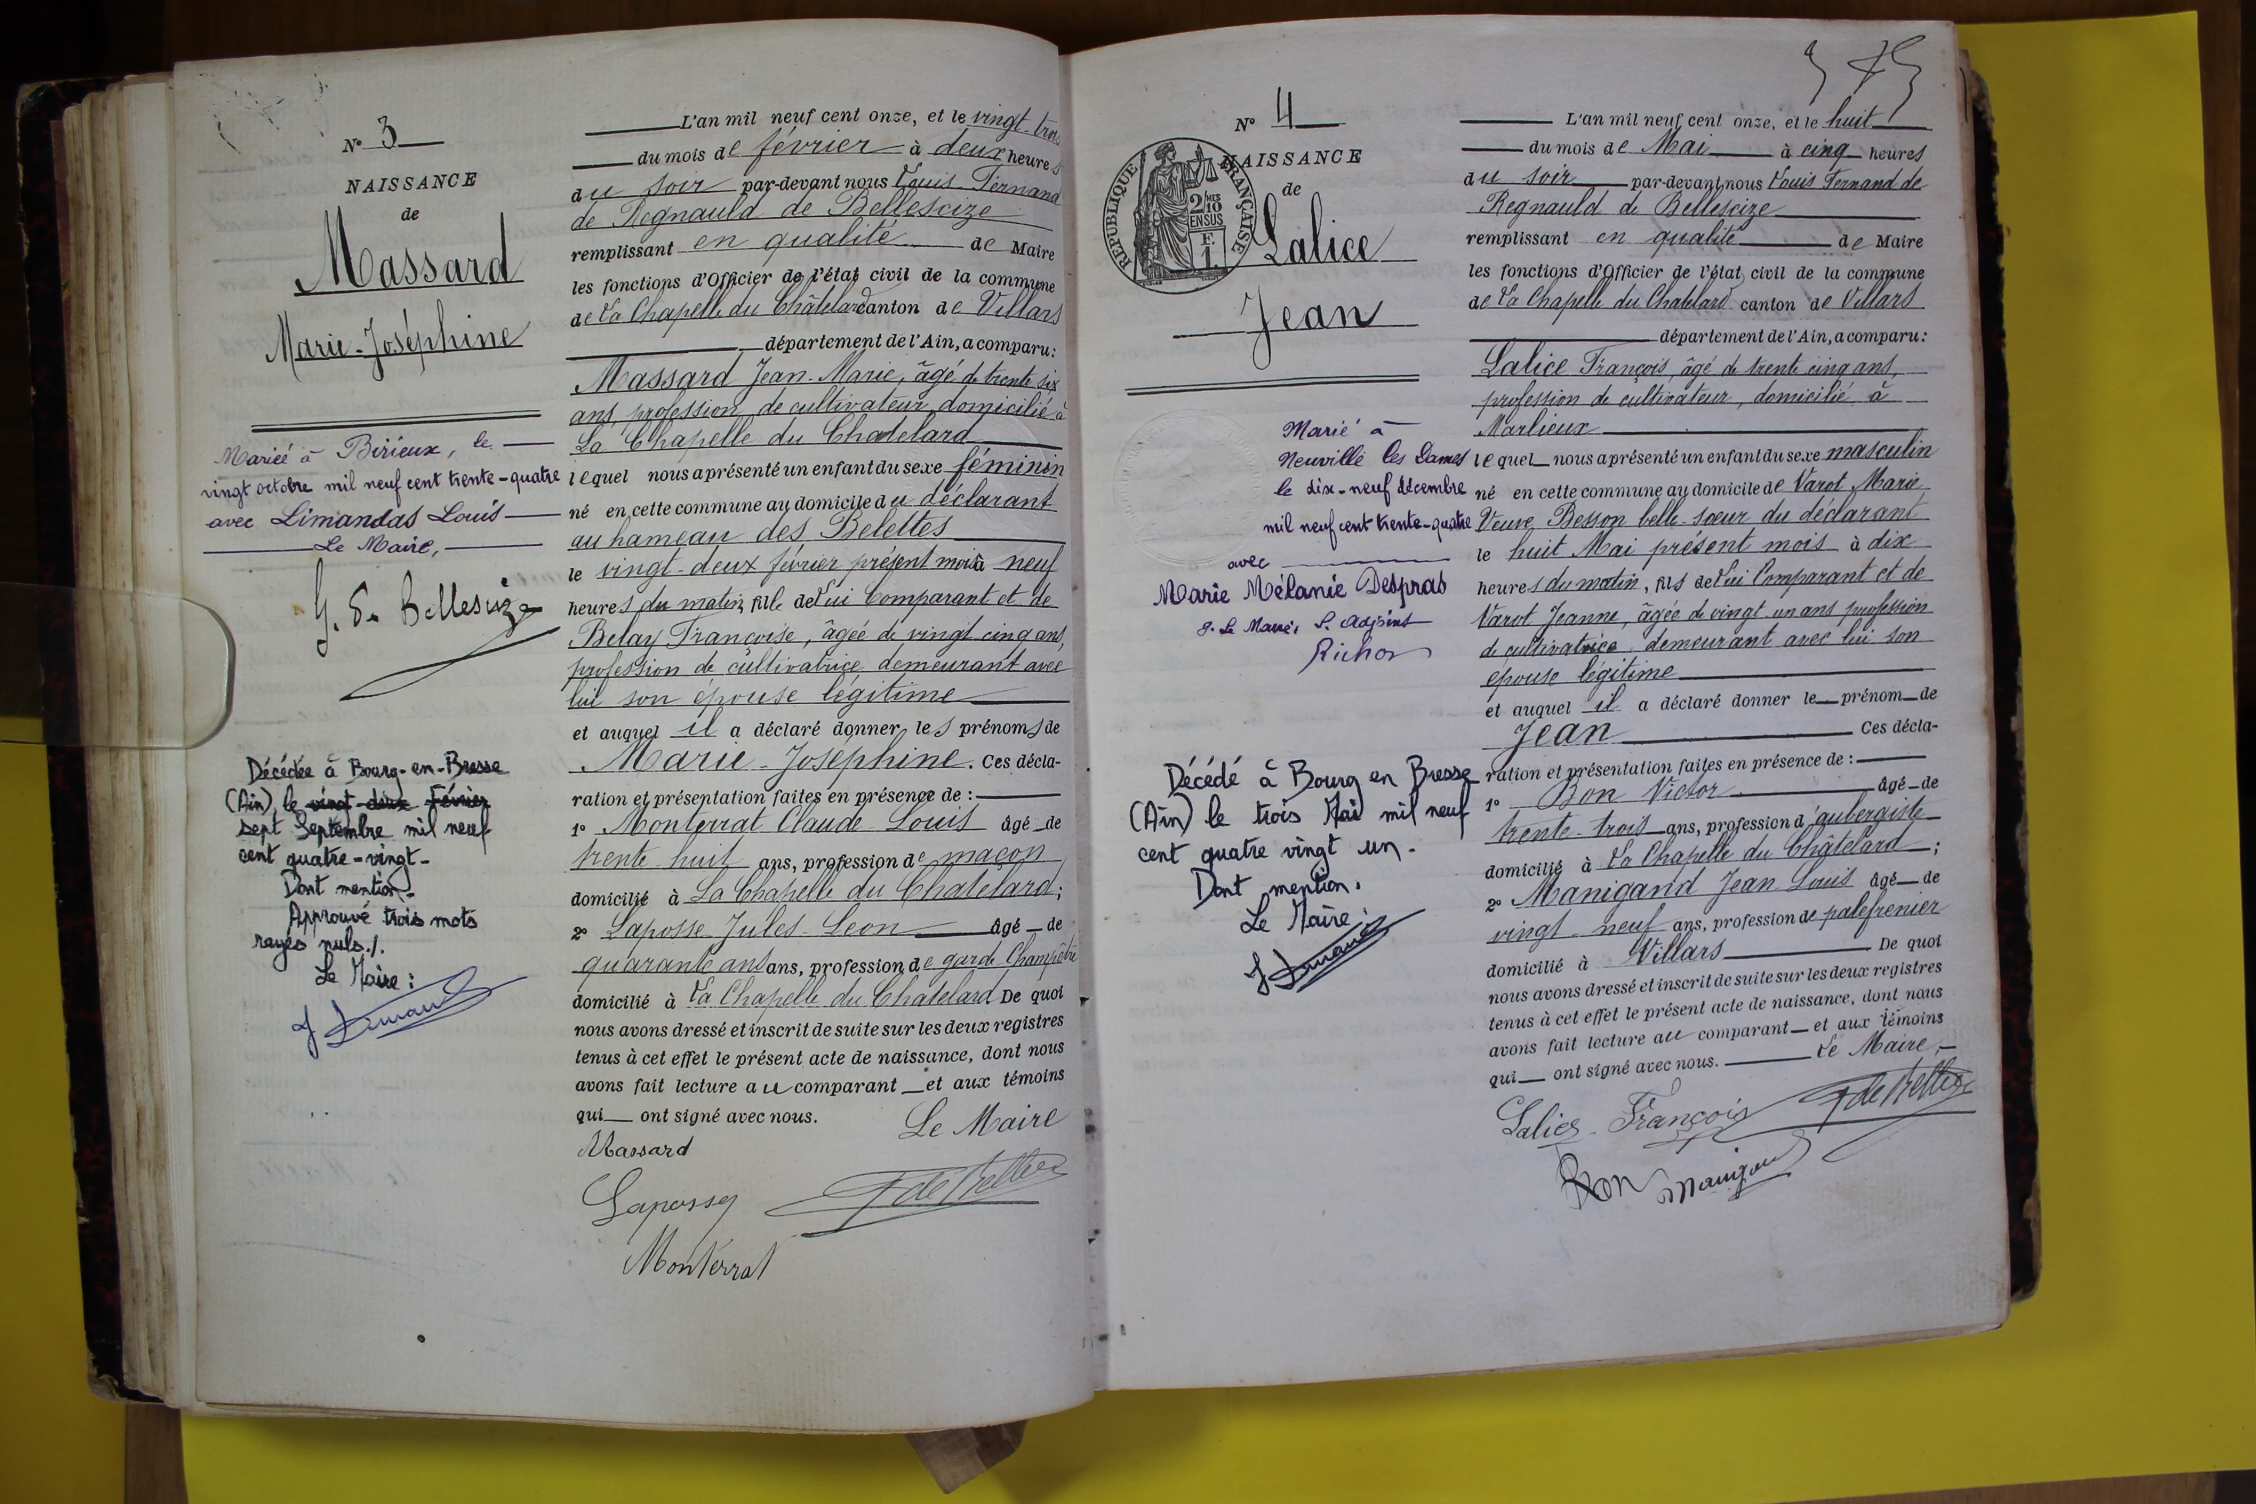 N° 3
NAISSANCE
de
Massard
Marie-Joséphine
Mariée à Birieux, le
vingt octobre mil neuf cent trente-quatre
avec Limandas Louis
Le Maire,
G. de Bellescize
Décédée à Bourg-en-Bresse
(Ain) le vingt-deux Février
sept Septembre mil neuf
cent quatre-vingt-
Dont mention.
Approuvé trois mots
rayés nuls./.
Le Maire :
L'an mil neuf cent onze, et le vingt-trois
du mois de février à deux heures
du soir par-devant nous Louis Fernand
de Regnauld de Bellescize
remplissant en qualité de Maire
les fonctions d'Officier de l'état civil de la commune
de La Chapelle du Châtelard canton de Villars
département de l'Ain, a comparu :
Massard Jean-Marie, âgé de trente six
ans, profession de cultivateur, domicilié à
La Chapelle du Chatelard
lequel nous a présenté un enfant du sexe féminin
né en cette commune au domicile du déclarant
au hameau des Belettes
le vingt-deux février présent mois à neuf
heures du matin, fille de Lui Comparant et de
Belay Françoise, âgée de vingt cinq ans,
profession de cultivatrice demeurant avec
lui son épouse légitime
et auquel il a déclaré donner les prénoms de
Marie-Joséphine. Ces décla-
ration et présentation faites en présence de :
1° Monterrat Claude Louis âgé de
trente huit ans, profession de maçon
domicilié à La Chapelle du Chatelard ;
2° Laposse Jules-Leon âgé de
quarante ans ans, profession de garde Champêtre
domicilié à La Chapelle du Chatelard De quoi
nous avons dressé et inscrit de suite sur les deux registres
tenus à cet effet le présent acte de naissance, dont nous
avons fait lecture au comparant et aux témoins
qui ont signé avec nous.
Le Maire
Massard
Laposse
Monterrat
N° 4
NAISSANCE
de
RÉPUBLIQUE FRANÇAISE
2/10
EN SUS
F.
1
Lalice
Jean
Marié à
Neuville les Dames
le dix-neuf décembre
mil neuf cent trente-quatre
avec
Marie Mélanie Despras
P. Le Maire, L'Adjoint
Richon
Décédé à Bourg en Bresse
(Ain) le trois Mai mil neuf
cent quatre vingt un.
Dont mention.
Le Maire :
L'an mil neuf cent onze, et le huit
du mois de Mai à cinq heures
du soir par-devant nous Louis Fernand de
Regnauld de Bellescize
remplissant en qualité de Maire
les fonctions d'Officier de l'état civil de la commune
de La Chapelle du Chatelard canton de Villars
département de l'Ain, a comparu :
Lalice François, âgé de trente cinq ans,
profession de cultivateur, domicilié à
Marlieux
lequel nous a présenté un enfant du sexe masculin
né en cette commune au domicile de Varot Marie
Veuve Besson belle-sœur du déclarant
le huit Mai présent mois à dix
heures du matin, fils de Lui Comparant et de
Varot Jeanne, âgée de vingt-un ans profession
de cultivatrice demeurant avec lui son
épouse légitime
et auquel il a déclaré donner le prénom de
Jean Ces décla-
ration et présentation faites en présence de :
1° Bon Victor âgé de
trente-trois ans, profession d'aubergiste
domicilié à La Chapelle du Châtelard ;
2° Manigand Jean Louis âgé de
vingt-neuf ans, profession de palefrenier
domicilié à Villars De quoi
nous avons dressé et inscrit de suite sur les deux registres
tenus à cet effet le présent acte de naissance, dont nous
avons fait lecture au comparant et aux témoins
qui ont signé avec nous. Le Maire,
Lalice François
Bon Manigand